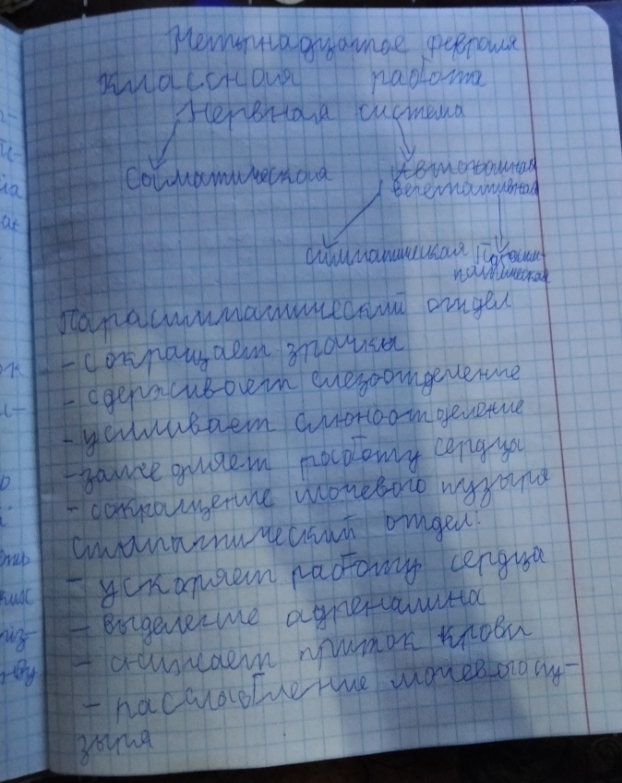 Четырнадцатое февраля
Классная работа
Нервная система
Соматическая Автономная
вегетативная
симпатическая Парасим-
патическая
Парасимпатический отдел
- сокращает зрачки
- сдерживает слезоотделение
- усиливает слюноотделение
- замедляет работу сердца
- сокращение мочевого пузыря
Симпатический отдел:
- ускоряет работу сердца
- выделение адреналина
- снижает приток крови
- расслабление мочевого пу-
зыря